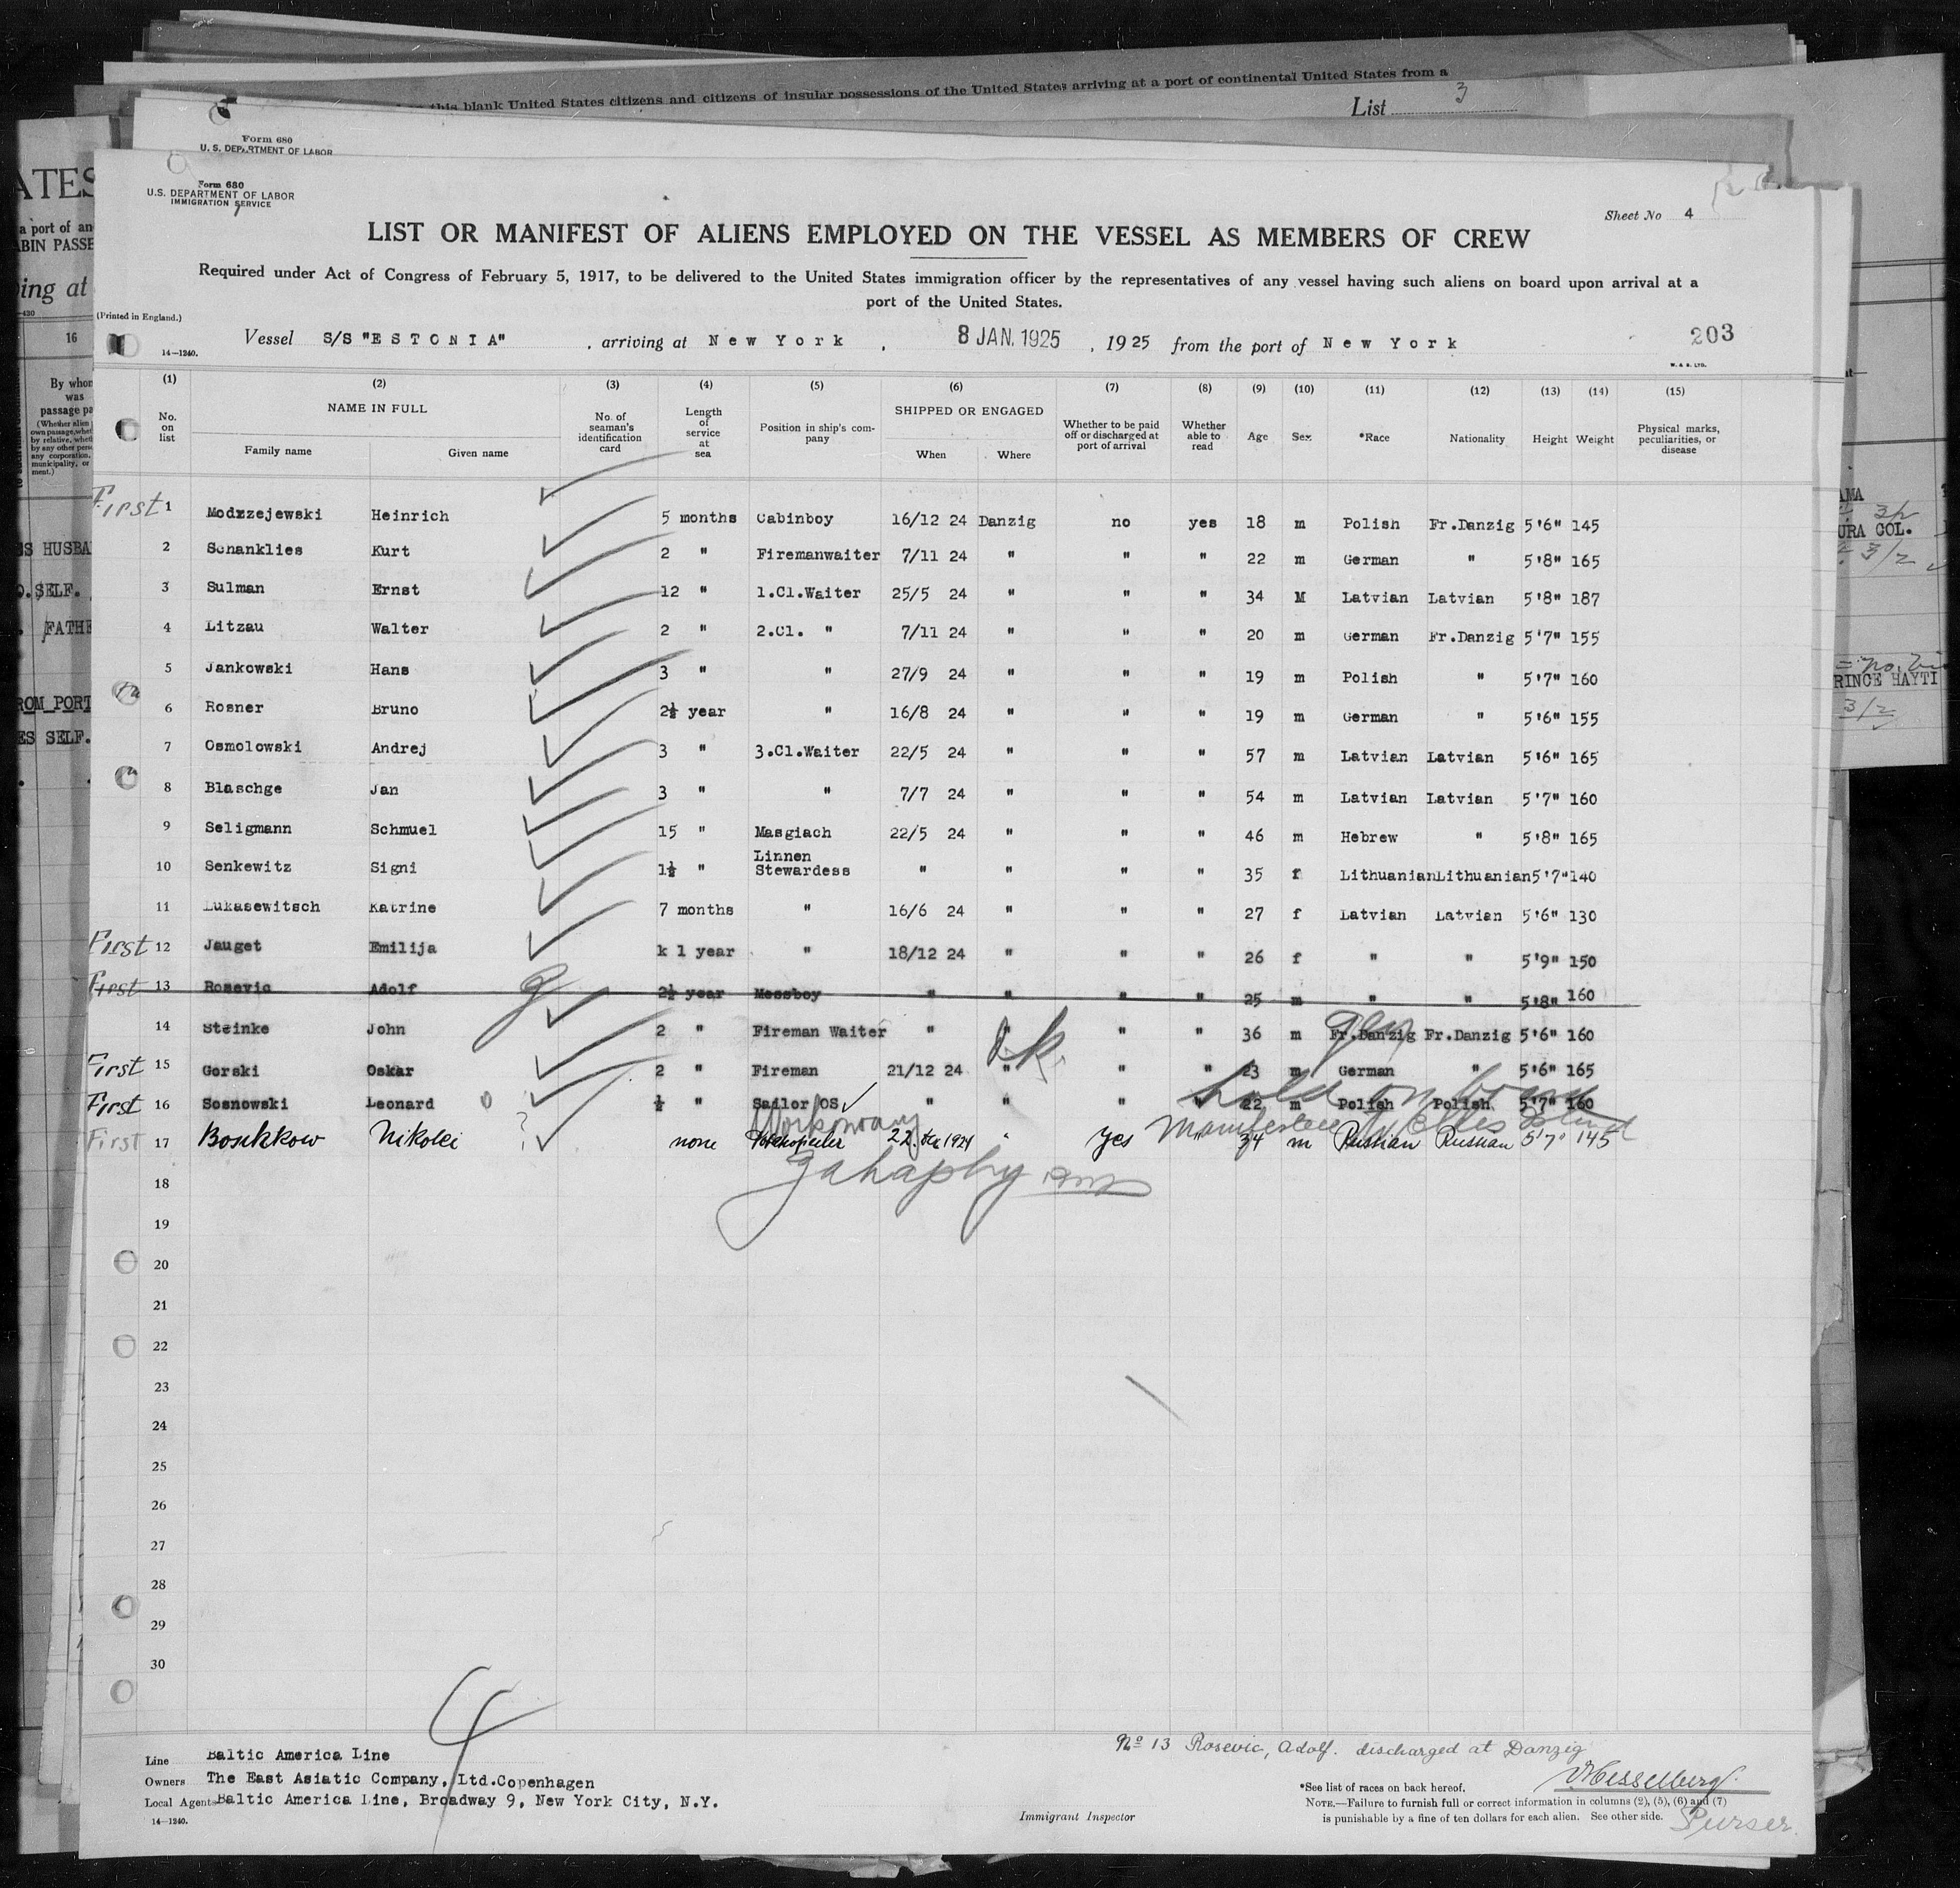 this blank United States citizens and citizens of insular possessions of the United States arriving at a port of continental United States from a
List 3
Form 680
U. S. DEPARTMENT OF LABOR
Form 680
U.S. DEPARTMENT OF LABOR
IMMIGRATION SERVICE
Sheet No 4
LIST OR MANIFEST OF ALIENS EMPLOYED ON THE VESSEL AS MEMBERS OF CREW
Required under Act of Congress of February 5, 1917, to be delivered to the United States immigration officer by the representatives of any vessel having such aliens on board upon arrival at a
port of the United States.
(Printed in England.)
14—1240.
Vessel S/S "ESTONIA" , arriving at New York , 8 JAN. 1925 , 1925 from the port of New York
203
W. & S. LTD.
(1) (2) (3) (4) (5) (6) (7) (8) (9) (10) (11) (12) (13) (14) (15)
No. on list NAME IN FULL Family name Given name No. of seaman's identification card Length of service at sea Position in ship's company SHIPPED OR ENGAGED When Where Whether to be paid off or discharged at port of arrival Whether able to read Age Sex *Race Nationality Height Weight Physical marks, peculiarities, or disease
First 1 Modrzejewski Heinrich 5 months Cabinboy 16/12 24 Danzig no yes 18 m Polish Fr.Danzig 5'6" 145
2 Schanklies Kurt 2 " Firemanwaiter 7/11 24 " " " 22 m German " 5'8" 165
3 Sulman Ernst 12 " 1.Cl.Waiter 25/5 24 " " " 34 M Latvian Latvian 5'8" 187
4 Litzau Walter 2 " 2.Cl. " 7/11 24 " " " 20 m German Fr.Danzig 5'7" 155
5 Jankowski Hans 3 " " 27/9 24 " " " 19 m Polish " 5'7" 160
6 Rosner Bruno 2½ year " 16/8 24 " " " 19 m German " 5'6" 155
7 Osmolowski Andrej 3 " 3.Cl.Waiter 22/5 24 " " " 57 m Latvian Latvian 5'6" 165
8 Blaschge Jan 3 " " 7/7 24 " " " 54 m Latvian Latvian 5'7" 160
9 Seligmann Schmuel 15 " Masgiach 22/5 24 " " " 46 m Hebrew " 5'8" 165
10 Senkewitz Signi 1½ " Linnen Stewardess " " " " 35 f Lithuanian Lithuanian 5'7" 140
11 Lukasewitsch Katrine 7 months " 16/6 24 " " " 27 f Latvian Latvian 5'6" 130
First 12 Jauget Emilija k 1 year " 18/12 24 " " " 26 f " " 5'9" 150
First 13 Rosevic Adolf 2½ year Messboy " " " " 25 m " " 5'8" 160
14 Steinke John 2 " Fireman Waiter " " " " 36 m Fr.Danzig Fr.Danzig 5'6" 160
ger
o.k.
First 15 Gorski Oskar 2 " Fireman 21/12 24 " " " 23 m German " 5'6" 165
hold on board
First 16 Sosnowski Leonard 0 ½ " Sailor OS " " " " 22 m Polish Polish 5'7" 160
Workaway
to Ellis Island
First 17 Boukkow Nikolei ? none 22. Dec 1924 " yes " 34 m Russian Russian 5'7" 145
18
19
20
21
22
23
24
25
26
27
28
29
30
4
No 13 Rosevic, Adolf. discharged at Danzig
Line Baltic America Line
Owners The East Asiatic Company, Ltd.Copenhagen
Local Agents Baltic America Line, Broadway 9, New York City, N.Y.
14—1240.
Immigrant Inspector
*See list of races on back hereof.
NOTE.—Failure to furnish full or correct information in columns (2), (5), (6) and (7)
is punishable by a fine of ten dollars for each alien. See other side.
Purser.
ATES
a port of an
BIN PASSE
ing at
16
By whom
was
passage pa
SS HUSBA
SELF.
FATHE
ROM PORT
ES SELF.
AMA
URA COL.
3/2
RINCE HAYTI
3/2